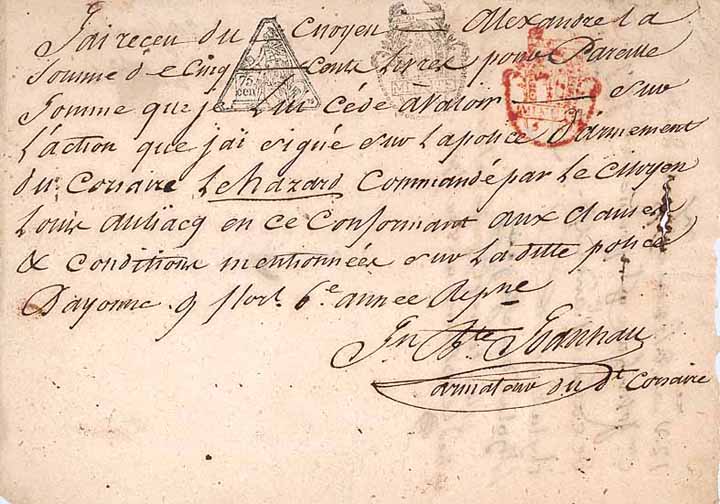 J'ai reçeu du Citoyen Alexandre la
Somme de Cinq Cents livres pour Pareille
Somme que je lui céde avaloir sur
L'action que j'ai signé sur la police D'armement
du Corsaire Le hazard Commandé par Le Citoyen
Louis en ce Conformant aux Clauses
& Conditions mentionnées sur La ditte police
Bayonne 9 flor. 6e année Repne
Jn Bte
armateur du dt Corsaire
75
cent